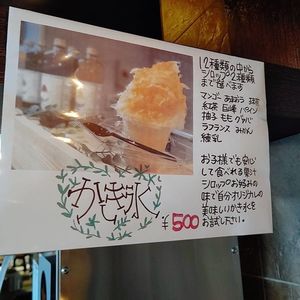 12種類の中から
シロップ2種類
まで選べます
マンゴー あまおう 抹茶
紅茶 巨峰 パイン
柚子 もも グァバ
ラフランス みかん
練乳
お子様でも安心
して食べれる果汁
シロップ お好みの
味で自分オリジナルの
美味しいかき氷を
お試し下さい。
かき氷
¥500